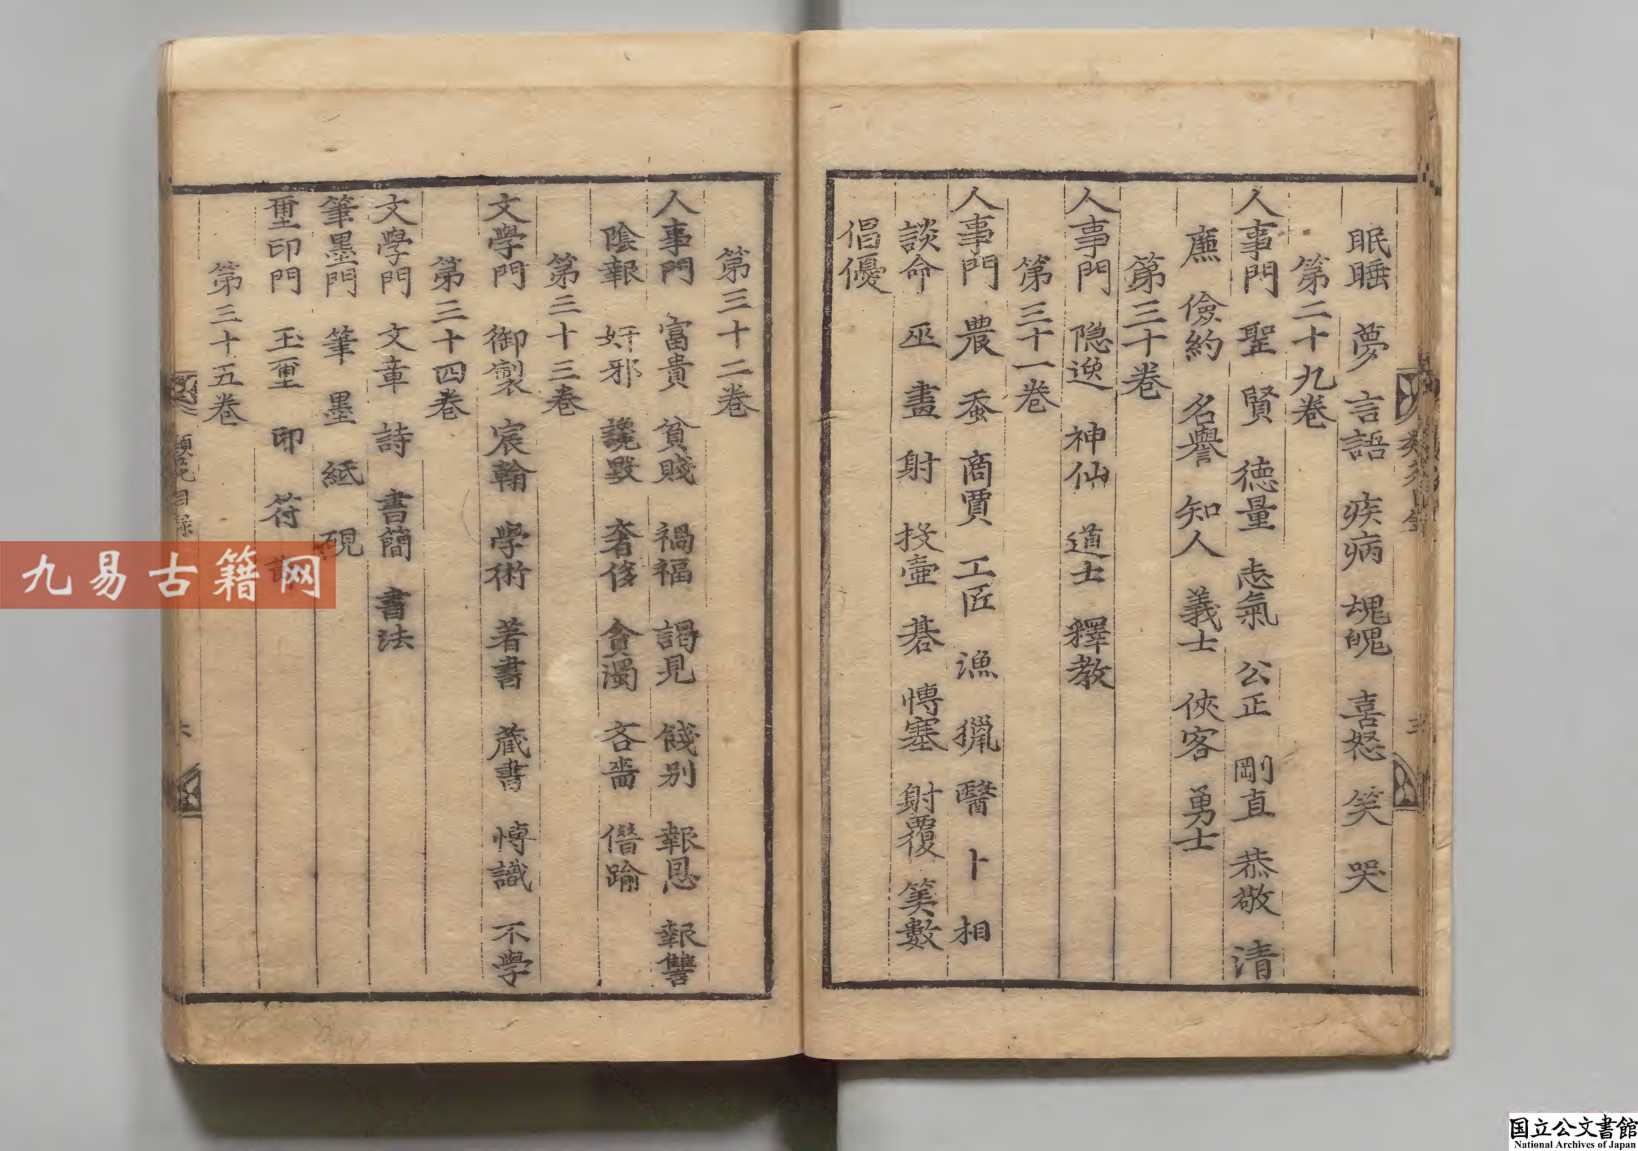 眠睡 夢 言語 疾病 魂魄 喜怒 笑 哭
第二十九卷
人事門 聖賢 德量 志氣 公正 剛直 恭敬 清
廉 儉約 名譽 知人 義士 俠客 勇士
第三十卷
人事門 隐逸 神仙 道士 釋教
第三十一卷
人事門 農 蚕 商賈 工匠 漁 獵 醫 卜 相
談命 巫 畫 射 投壺 碁 愽塞 射覆 筭數
倡優
第三十二卷
人事門 富貴 貧賤 禍福 謁見 餞别 報恩 報讐
陰報 奸邪 讒毀 奢侈 貪濁 吝嗇 僭踰
第三十三卷
文學門 御製 宸翰 學術 著書 藏書 愽識 不學
第三十四卷
文學門 文章 詩 書簡 書法
筆墨門 筆 墨 紙 硯
璽印門 玉璽 印 符
第三十五卷
九易古籍网
国立公文書館
National Archives of Japan